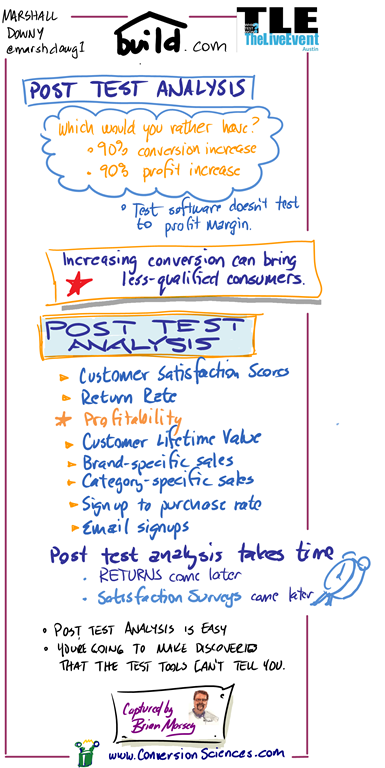 MARSHALL
DOWNY
@marshdawg1
build.com
TLE
TheLiveEvent
Austin
POST TEST ANALYSIS
Which would you rather have?
• 90% conversion increase
• 90% profit increase
• Test software doesn't test
to profit margin.
Increasing conversion can bring
less-qualified consumers.
POST TEST
ANALYSIS
Customer Satisfaction Scores
Return Rate
Profitability
Customer Lifetime Value
Brand-specific sales
Category-specific sales
Signup to purchase rate
Email signups
Post test analysis takes time
• RETURNS come later
• Satisfaction Surveys came later
• POST TEST ANALYSIS IS EASY
• YOU'RE GOING TO MAKE DISCOVERIES
THAT THE TEST TOOLS CAN'T TELL YOU.
Captured by
Brian Massey
www.ConversionSciences.com